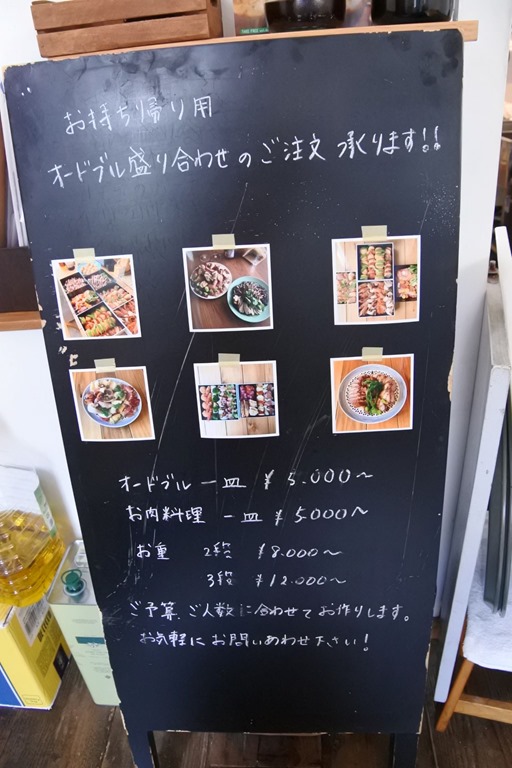 お持ち帰り用
オードブル盛り合わせのご注文 承ります!!
オードブル 一皿 ¥5.000〜
お肉料理 一皿 ¥5000〜
お重 2段 ¥8.000〜
3段 ¥12.000〜
ご予算 ご人数に合わせてお作りします。
お気軽にお問いあわせ下さい!